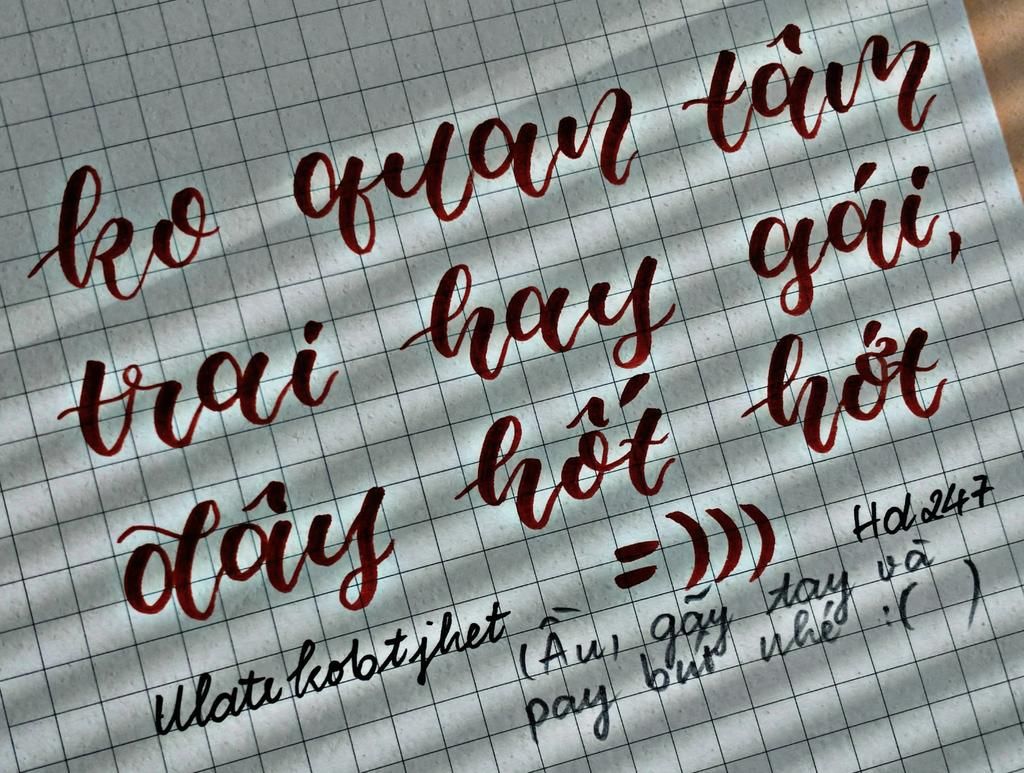 ko quan tâm
trai hay gái,
đây hốt hớt
=)))
Hd247
Ulatr kobtjhet
(Ầu, gãy tay và
pay bút nhé :( )